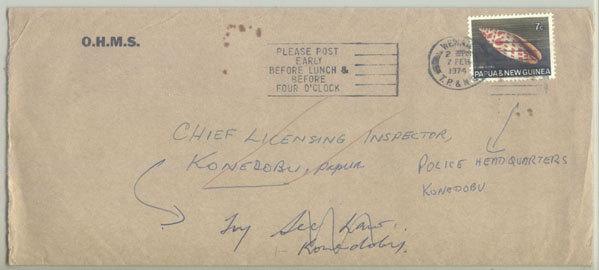 O.H.M.S.
PLEASE POST
EARLY
BEFORE LUNCH &
BEFORE
FOUR O'CLOCK
7 FEB
1974
7c
PAPUA & NEW GUINEA
CHIEF LICENSING INSPECTOR,
KONEDOBU, PAPUA
POLICE HEADQUARTERS
KONEDOBU
Try Sec Law.
Konedobu.